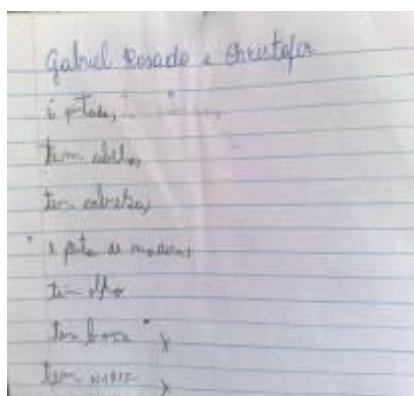 Gabriel Rosado e Christofer
é pintado,
tem cabelo,
tem cabeça,
é feito de madeira,
tem olho
tem boca
tem NARIZ